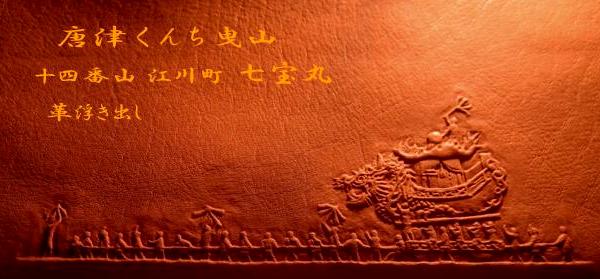 唐津くんち曳山
十四番山 江川町 七宝丸
革浮き出し